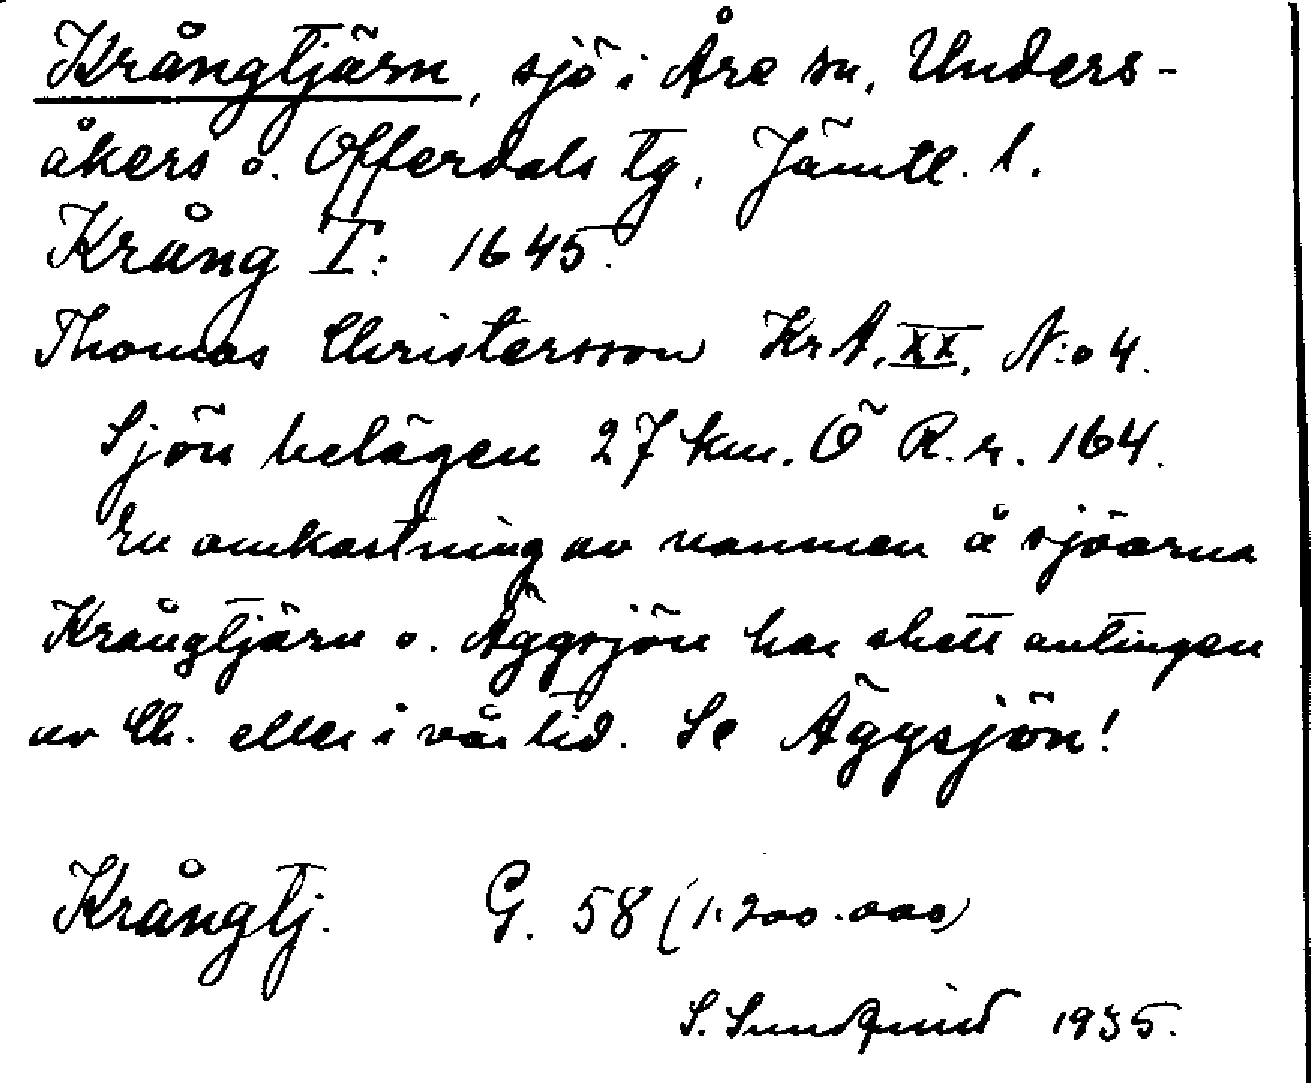 Krångtjärn, sjö i Åre sn, Unders-
åkers o. Offerdals tg, Jämtl. l.
Krång T: 1645.
Thomas Christersson Kr.A. XX, N:o 4.
Sjön belägen 27 km. Ö R.r. 164.
En omkastning av namnen å sjöarna
Krångtjärn o. Äggsjön har skett antingen
av Ch. eller i vår tid. Se Äggsjön!
Krångtj. G. 58 (1:200.000)
S. Sundquist 1935.